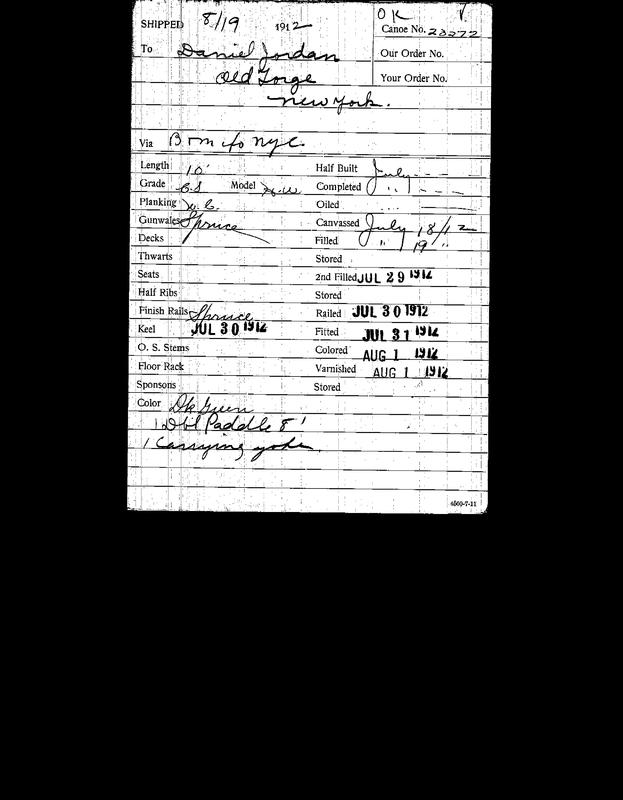 OK V.
SHIPPED 8/19 1912 Canoe No. 23272
To Daniel Jordan Our Order No.
Old Forge Your Order No.
New York.
Via B + m c/o NYC.
Length 10' Half Built July
Grade C.S Model H.W Completed " "
Planking W.C. Oiled
Gunwales Spruce Canvassed July 18/12
Decks Filled " 19 "
Thwarts Stored
Seats 2nd Filled JUL 29 1912
Half Ribs Stored
Finish Rails Spruce Railed JUL 30 1912
Keel JUL 30 1912 Fitted JUL 31 1912
O. S. Stems Colored AUG 1 1912
Floor Rack Varnished AUG 1 1912
Sponsons Stored
Color Dk Green
1 Dbl Paddle 8'
1 Carrying yoke.
4500-7-11